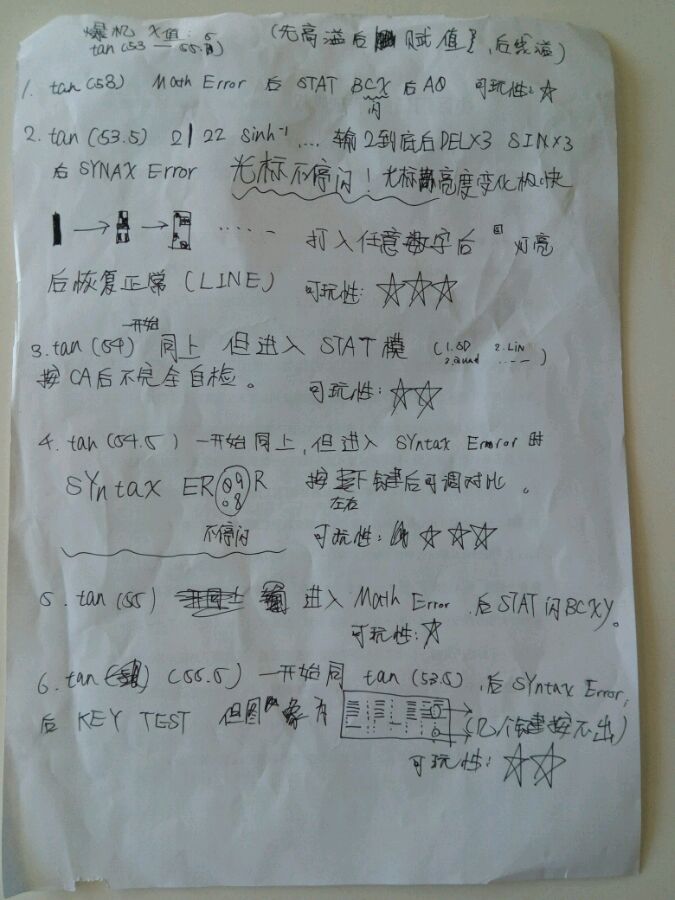 爆机 X值:
tan(53 — 55.5) (先高溢后赋值,后线溢)
1. tan(58) Math Error 后 STAT BCX 后 AQ 可玩性:☆
闪
2. tan(53.5) 2122 sinh⁻¹.... 输2到底后DEL×3 SIN×3
后 SYNAX Error 光标不停闪!光标亮度变化极快
→ → ..... 打入任意数字后 灯亮
后恢复正常(LINE) 可玩性:☆☆☆
一开始
3. tan(54) 同上 但进入 STAT 模 (1.SD 2.LiN
2.Quad ....)
按CA后不完全自检。 可玩性:☆☆
4. tan(54.5) 一开始同上,但进入 SYntax Error 时
SYntax ER R 按下键后可调对比。
左右
不停闪 可玩性:☆☆☆
5. tan(55) 进入 Math Error 后STAT闪BCXY。
可玩性:☆
6. tan (55.5) 一开始同 tan(53.5),后 SYntax Error,
后 KEY TEST 但图象有 (几个键按不出)
可玩性:☆☆